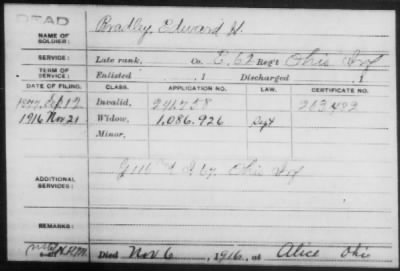 DEAD
NAME OF SOLDIER: Bradley, Edward H.
SERVICE: Late rank, Co. E, 62 Reg't Ohio Inf
TERM OF SERVICE: Enlisted , 1 Discharged , 1
DATE OF FILING. CLASS. APPLICATION NO. LAW. CERTIFICATE NO.
1877, Sep 12 Invalid, 241.758
1916 Nov 21 Widow, 1,086,926 Sept
Minor,
ADDITIONAL SERVICES: Ohio Inf
REMARKS:
Died Nov 6, 1916, at Alice Ohio